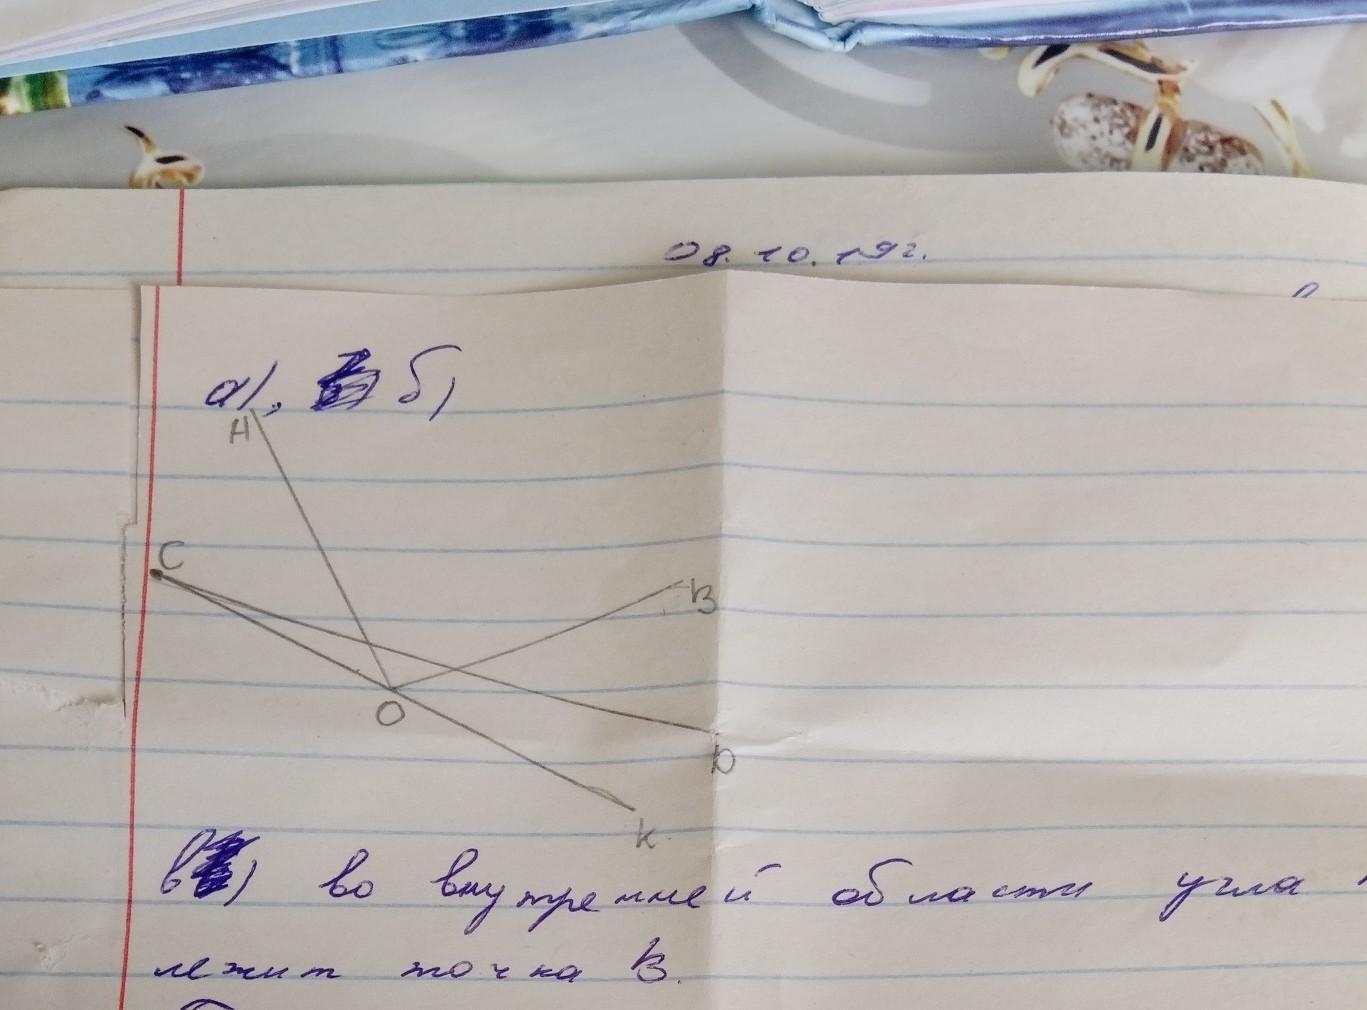 08.10.19г.
а), б)
А
С
В
О
D
К
в) во внутренней области угла
лежит точка В.